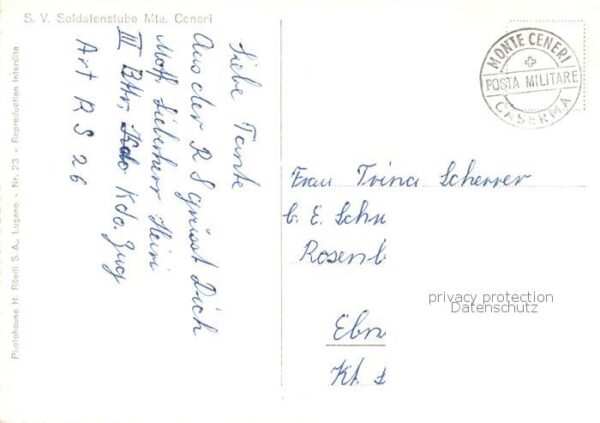 S. V. Soldatenstube Mte. Ceneri
Photohouse H. Rüedi S. A., Lugano - Nr. 23 - Reproduction interdite
Liebe Tante
Aus der R S grüsst Dich
Heiri
III Bttr. Kdo. Zug
Art R S 26
MONTE CENERI
POSTA MILITARE
CASERMA
Frau Trina Scherrer
b. E. Schu
Rosenb
Ebn
Kt.
privacy protection
Datenschutz